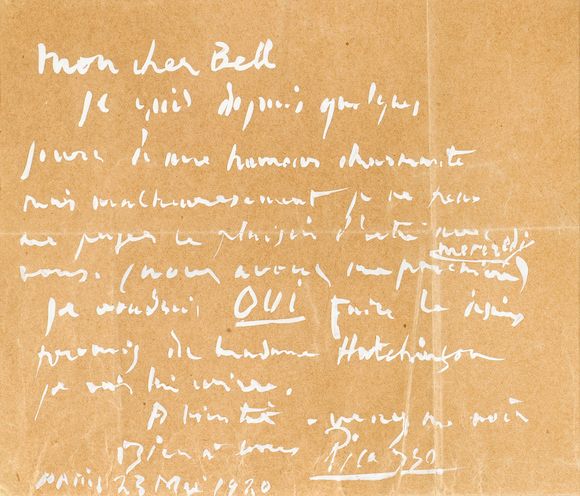 Mon cher Bell
Je suis depuis quelques
jours d'une humeur charmante
mais malheureusement je ne peux
me payer le plaisir d'etre avec
mercredi
vous. (nous avons
je voudrais OUI faire le
promis de Madame Hutchinson
je vais lui ecrire.
A bientôt - venez me voir
Bien a vous Picasso
Paris 23 Mai 1920